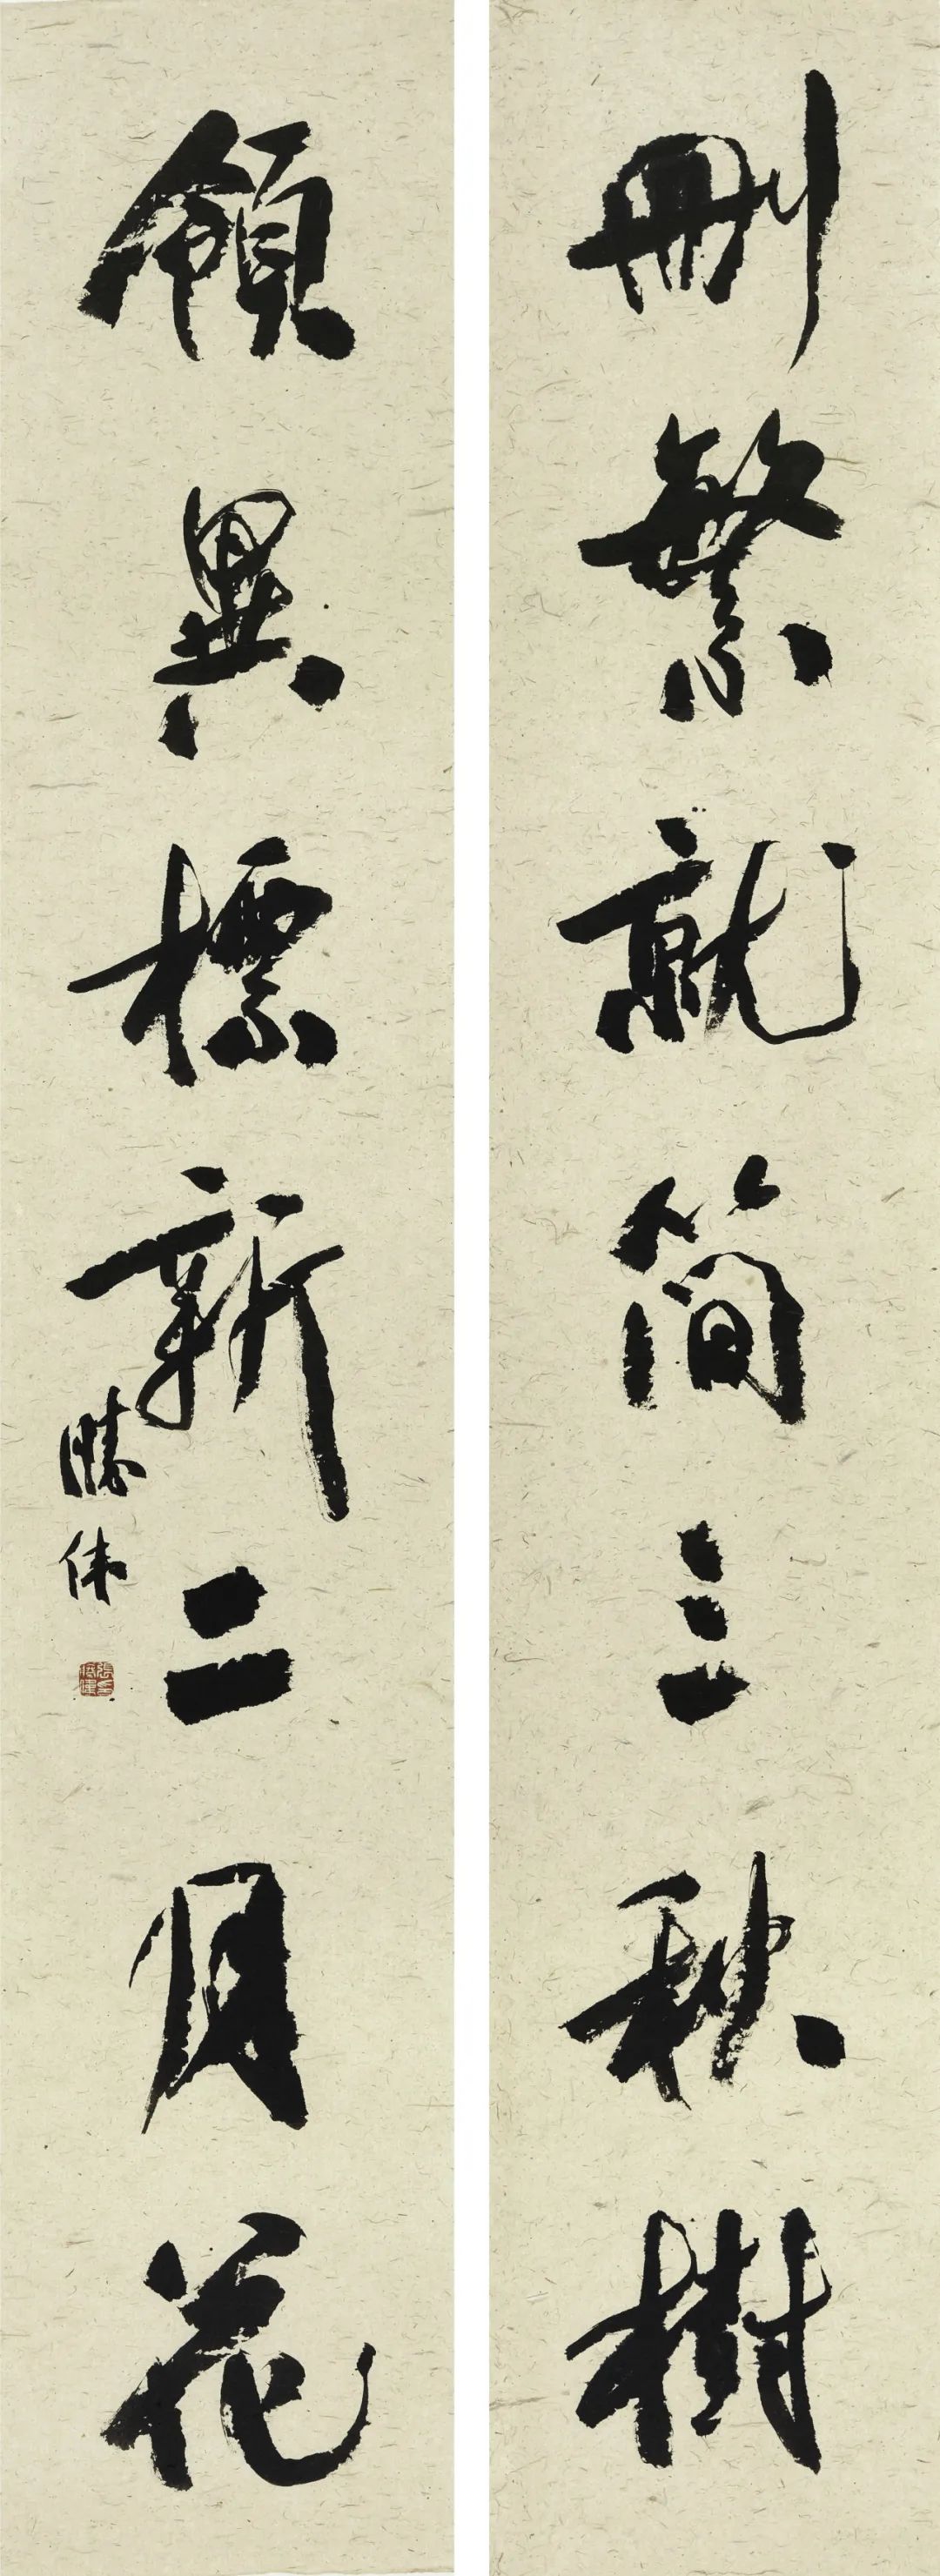 刪繁就簡三秋樹
領異標新二月花
勝偉